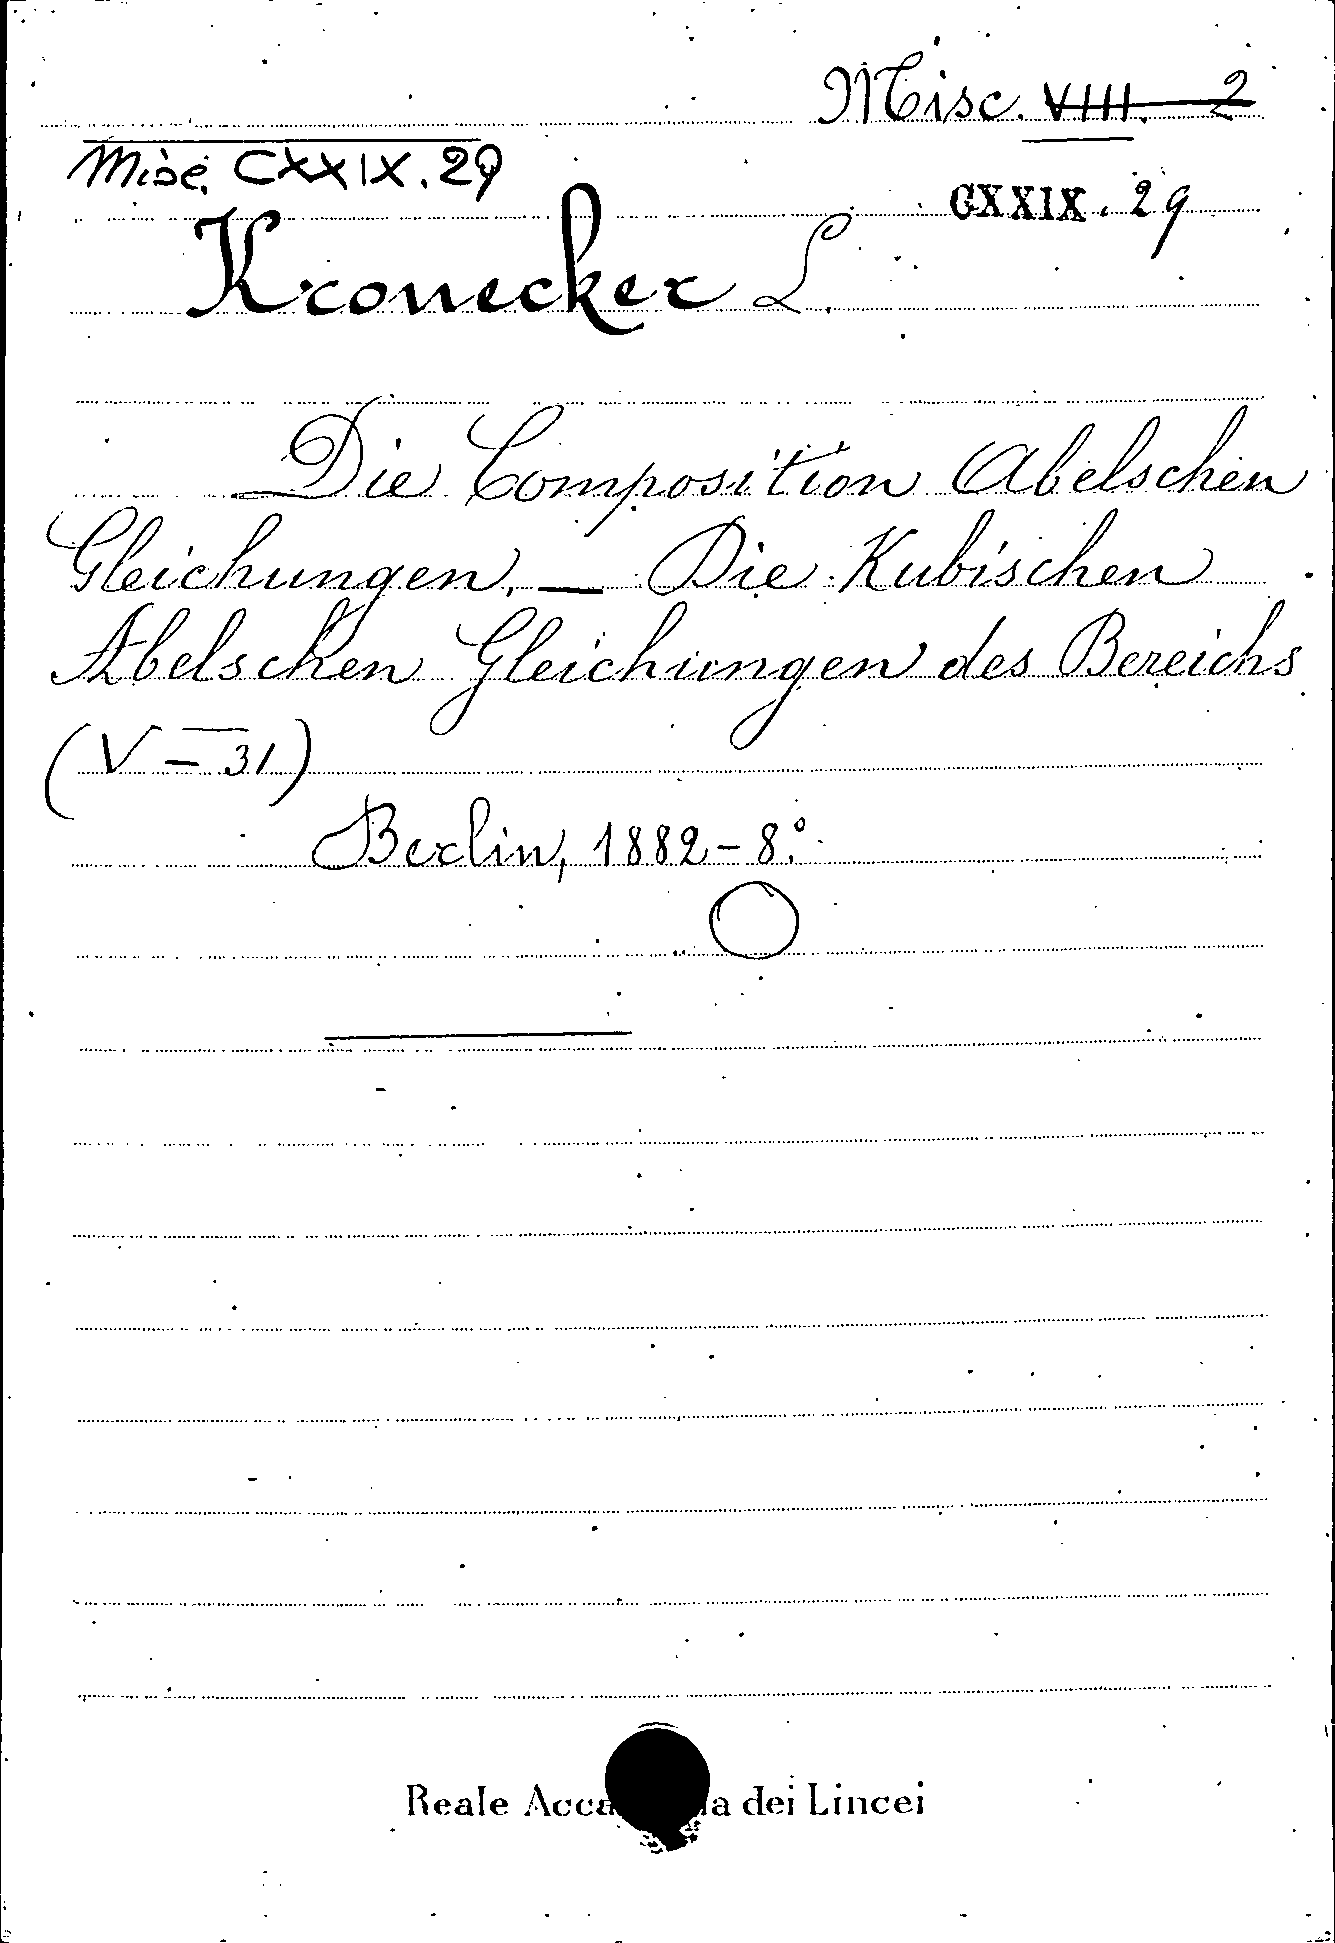 Misc. VIII. 2
Misc. CXXIX. 29
CXXIX. 29
Kronecker L.
Die Composition Abelschen
Gleichungen. — Die Kubischen
Abelschen Gleichungen des Bereichs
(√‾-31)
Berlin, 1882 - 8.°
Reale Acca ia dei Lincei